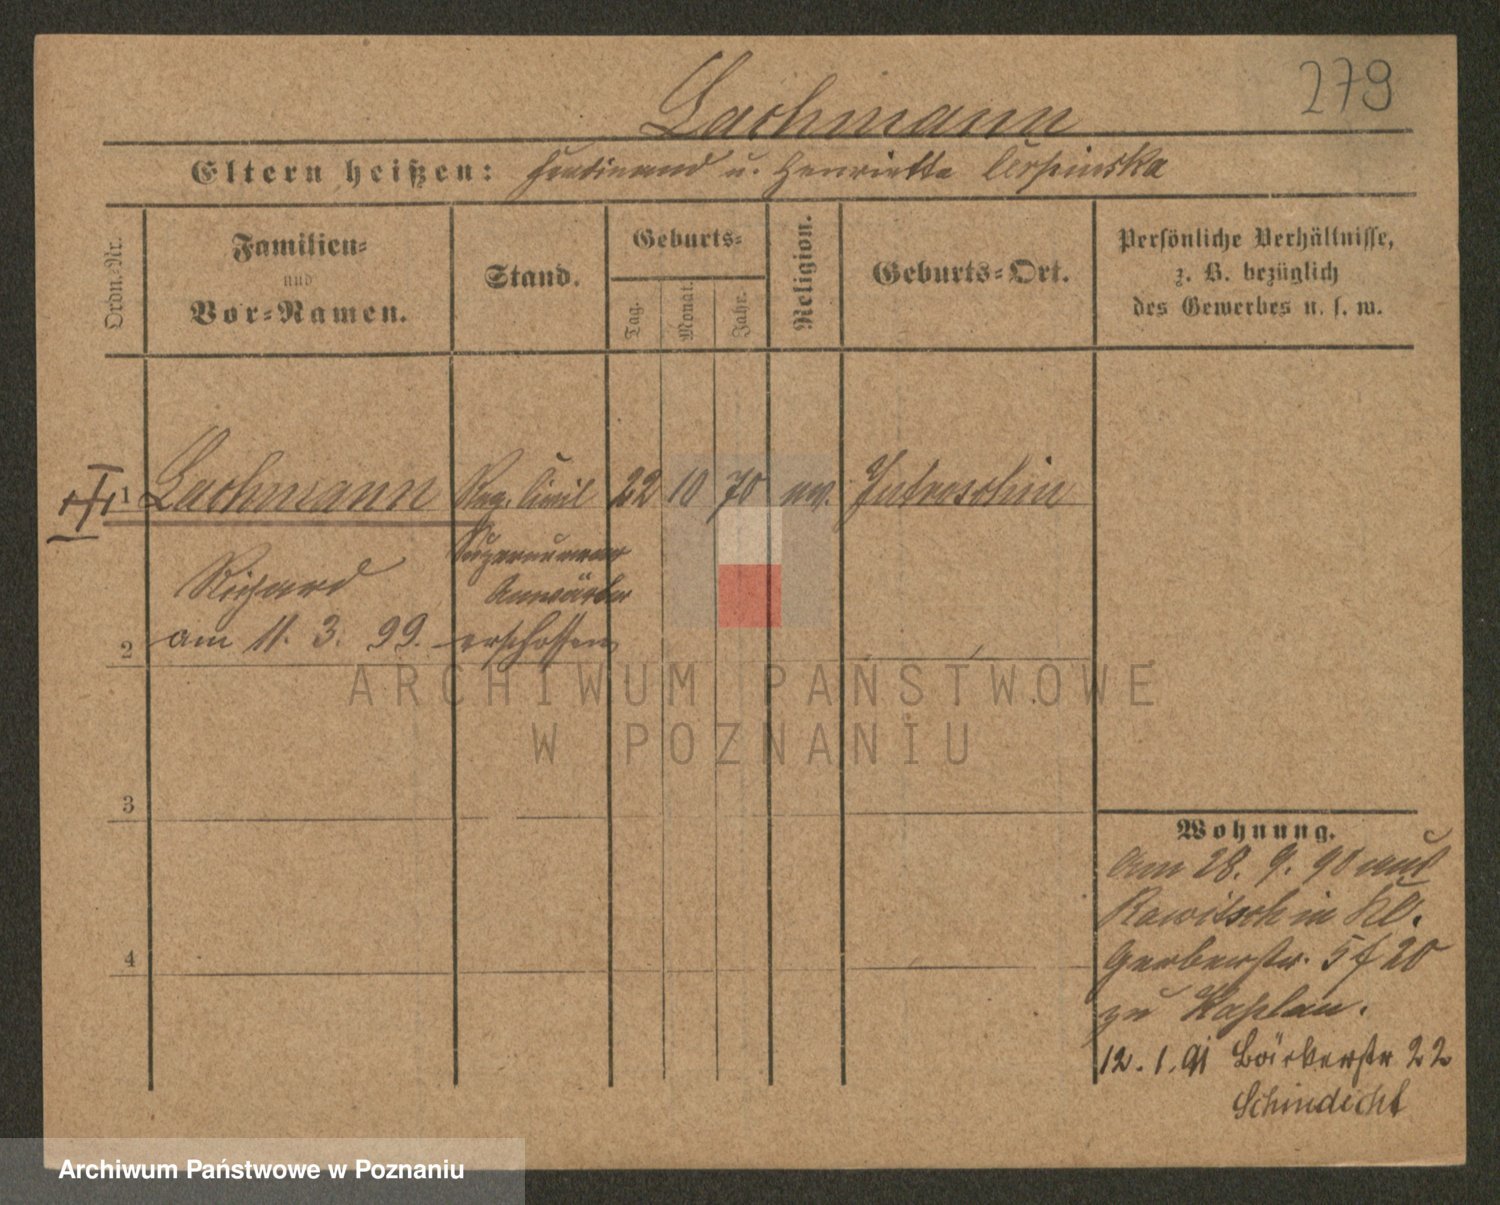 279
Lachmann
Eltern heißen: Ferdinand u. Henriette
Ordn.-Nr.
Familien-
und
Vor-Namen.
Stand.
Geburts-
Tag.
Monat.
Jahr.
Religion.
Geburts-Ort.
Persönliche Verhältnisse,
z. B. bezüglich
des Gewerbes u. s. w.
1 Lachmann Reg. Civil 22 10 70 ev. Jutroschin
Supernumerar
Richard Anwärter
2 am 11. 3. 99. erschossen
3
4
Wohnung.
Am 28. 9. 90 aus
Rawitsch in Kl.
Gerberstr. 5 f 20
zu Kaplan.
12. 1. 91 Bäckerstr 22
ARCHIWUM PAŃSTWOWE
W POZNANIU
Archiwum Państwowe w Poznaniu